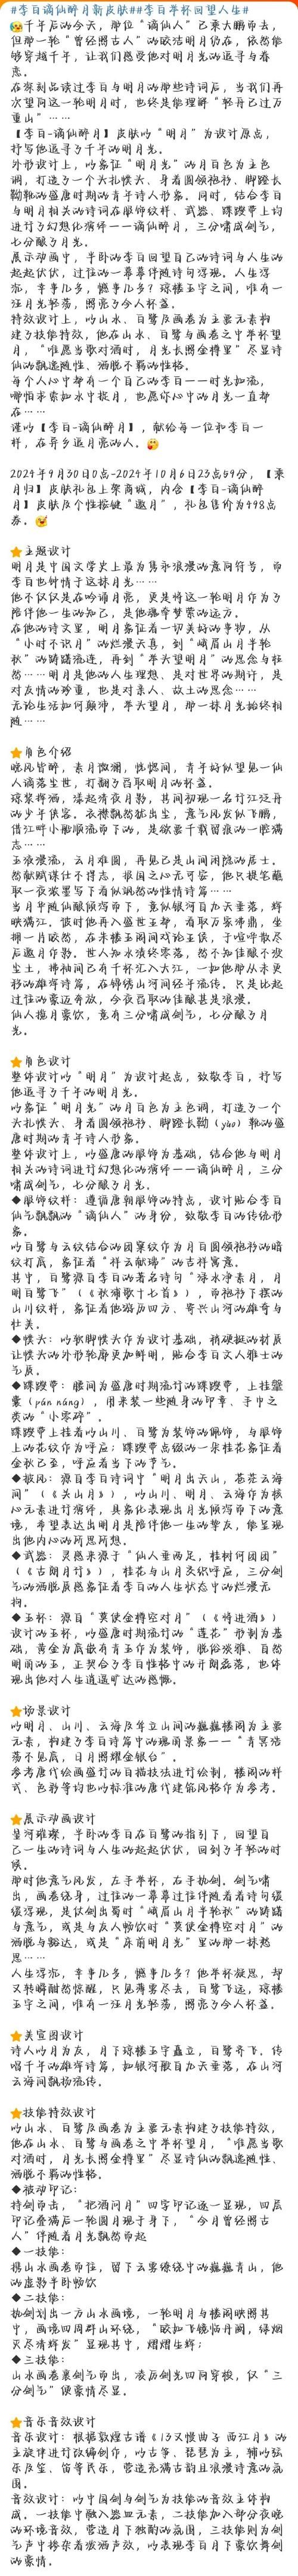 #李白谪仙醉月新皮肤##李白举杯回望人生#
千年后的今天，那位“谪仙人”已乘大鹏即去，
但那一轮“曾经照古人”的皎洁明月仍在，依然能
够穿越千年，让我们感受他对明月光的追寻与眷
恋。
在深刻品读过李白与明月的那些诗词后，当我们再
次望向这一轮明月时，也终是能理解“轻舟已过万
重山”……
【李白-谪仙醉月】皮肤以“明月”为设计原点，
抒写他追寻了千年的明月光。
外形设计上，以象征“明月光”的月白色为主色
调，打造了一个头扎幞头、身着圆领袍衫、脚蹬长
勒靴的盛唐时期的青年诗人形象。同时，结合李白
与明月相关的诗词在服饰纹样、武器、蹀躞带上均
进行了幻想化演绎——谪仙醉月，三分啸成剑气，
七分酿了月光。
展示动画中，半卧的李白回望自己的诗词与人生的
起起伏伏，过往的一幕幕伴随诗句浮现。人生浮
沉，幸事几多，憾事几多？琼楼玉宇之间，唯有一
汪月光轻荡，照亮了今人杯盏。
特效设计上，以山水、白鹭及画卷为主要元素构
建了技能特效，他在山水、白鹭与画卷之中举杯望
月，“唯愿当歌对酒时，月光长照金樽里”尽显诗
仙的飘逸随性、洒脱不羁的性格。
每个人心中都有一个自己的李白——时光如流，
哪怕求索如水中掬月，也愿你心中的月光一直都
在……
谨以【李白-谪仙醉月】，献给每一位和李白一
样，在异乡追月亮的人。
2024年9月30日0点-2024年10月6日23点59分，【乘
月归】皮肤礼包上架商城，内含【李白-谪仙醉
月】皮肤及个性按键“邀月”，礼包售价为498点
券。
主题设计
明月是中国文学史上最为隽永浪漫的意向符号，而
李白也钟情于这抹月光……
他不仅仅是在吟诵月亮，更是将这一轮明月作为了
陪伴他一生的知己，是他魂牵梦萦的远方。
在他的诗文里，明月象征着一切美好的事物，从
“小时不识月”的烂漫天真，到“峨眉山月半轮
秋”的踌躇流连，再到“举头望明月”的思念与怅
然……明月是他的人生理想、是对世界的期许，是
对友情的珍重，也是对亲人、故土的思念……
无论生活如何颠沛，举头望月，那一抹月光始终相
随……
角色介绍
晚风皆醉，素月微澜，恍惚间，青年好似望见一仙
人谪落尘世，打翻了舀取明月的杯盏。
琼浆挥洒，漾起清夜月影，其间初现一名竹江泛舟
的少年侠客。衣襟飘然犹出尘，意气风发似飞鹏，
借江畔小船顺流而下的，是欲要千载留痕的一腔满
志……
玉液漫流，云月难圆，再见已是山间闲隐的居士。
然献赋谋仕不得志，报国之心无可安，他只提笔蘸
取一夜浓墨写下看似飒然的性情诗篇……
当月华随仙酿倾泻而下，竟似银河自九天垂落，辉
映满江。彼时他再入盛世王都，看取万家佛肃，坐
拥一片皎然，在朱楼玉阁间戏论王侯，于喧哗散尽
后邀月作影。世人知水债终零落，然不知佳酿不没
尘土，拂袖间已有千杯忆入大江，一如他那从未更
移的雄浑诗篇，在锦绣山河间经年流传。只是比起
过往的豪迈奔放，今夜舀取的佳酿甚是浪漫。
仙人揽月豪饮，竟有三分啸成剑气，七分酿了月
光。
角色设计
整体设计以“明月”为设计起点，致敬李白，抒写
他追寻了千年的明月光。
以象征“明月光”的月白色为主色调，打造了一个
头扎幞头、身着圆领袍衫、脚蹬长勒（yào）靴的盛
唐时期的青年诗人形象。
整体设计上，以盛唐的服饰为基础，结合他与明月
相关的诗词进行幻想化的演绎——谪仙醉月，三分
啸成剑气，七分酿了月光。
◆服饰纹样：遵循唐朝服饰的特点，设计贴合李白
仙气飘飘的“谪仙人”的身份，致敬李白的传统形
象。
以白鹭与云纹结合的团窠纹作为月白圆领袍衫的暗
纹打底，象征着“祥云献瑞”的吉祥寓意。
其中，白鹭源自李白的著名诗句“渌水净素月，月
明白鹭飞”（《秋浦歌十七首》），而袍衫下摆的
山川纹样，象征着他游历四方、寄兴山河的雄奇与
壮美。
◆幞头：以软脚幞头作为设计基础，稍硬挺的材质
让幞头的外形轮廓更加鲜明，贴合李白文人雅士的
气质。
◆蹀躞带：腰间为盛唐时期流行的蹀躞带，上挂鞶
囊（pán náng），用来装一些随身的印章、手巾之
类的“小零碎”。
蹀躞带上挂着以山川、白鹭为装饰的佩饰，与服饰
上的花纹作为呼应；蹀躞带点缀的一朵桂花象征着
金秋已至，呼应着当下的节气。
◆披风：源自李白诗词中“明月出天山，苍茫云海
间”（《关山月》），以山川、明月、云海作为核
心元素进行演绎，具象化表现出月光倾泻而下的意
境，希望表达出明月是陪伴他一生的挚友，能呈现
出他内心的所思所想。
◆武器：灵感来源于“仙人垂两足，桂树何团团”
（《古朗月行》），桂花与山月交织呼应，三分剑
气的洒脱质感象征着李白的人生状态中的烂漫无
拘。
◆玉杯：源自“莫使金樽空对月”（《将进酒》）
设计的玉杯，以盛唐时期流行的“莲花”形制为基
础，黄金为底嵌有青玉作为装饰，脱俗淡雅、自然
明丽的玉，正契合了李白性格中的开朗磊落，也体
现出他对人生逍遥旷达的感慨。
场景设计
以明月、山川、云海及耸立山间的巍巍楼阁为主要
元素，构建了李白诗篇中的瑰丽景象——“青冥浩
荡不见底，日月照耀金银台”。
参考唐代绘画盛行的白描技法进行绘制，楼阁的样
式、色彩等均也以标准的唐代建筑风格作为参考。
展示动画设计
星河璀璨，半卧的李白在白鹭的指引下，回望自
己一生的诗词与人生的起起伏伏，回到了年轻的时
候。
那时他意气风发，左手举杯，右手执剑。剑气啸
出，画卷绕身，过往的一幕幕过往伴随着诗句缓
缓浮现，是仗剑出蜀时“峨眉山月半轮秋”的踌躇
与意气，或是与友人畅饮时“莫使金樽空对月”的
洒脱与豁达，或是“床前明月光”里的那一抹愁
思……
人生浮沉，幸事几多，憾事几多？他举杯凝思，却
又转瞬酣然惊醒，只见薄雾尽去，白鹭飞远，琼楼
玉宇之间，唯有一汪月光轻荡，照亮了今人杯盏。
美宣图设计
诗人以月为友，月下琼楼玉宇矗立，白鹭齐飞。传
唱千年的雄浑诗篇，如银河般自九天垂落，在山河
云海间飘扬流传。
技能特效设计
以山水、白鹭及画卷为主要元素构建了技能特效，
他在山水、白鹭与画卷之中举杯望月，“唯愿当歌
对酒时，月光长照金樽里”尽显诗仙的飘逸随性、
洒脱不羁的性格。
◆被动印记：
持剑而击，“把酒问月”四字印记逐一显现，四层
印记叠满后一轮圆月现于身下，“今月曾经照古
人”伴随着月光飘然而起
◆一技能：
携山水画卷而往，留下云雾缭绕中的巍巍青山，他
的虚影半卧畅饮
◆二技能：
执剑划出一方山水画境，一轮明月与楼阁映照其
中，画境四周群山环绕，“皎如飞镜临丹阙，绿烟
灭尽清辉发”显现其中，熠熠生辉；
◆三技能：
山水画卷裹剑气而出，凌厉剑光四向穿梭，仅“三
分剑气”便豪情尽显。
音乐音效设计
音乐设计：根据敦煌古谱《13又慢曲子 西江月》的
主旋律进行改编创作，以古筝、琵琶为主，辅以弦
乐及笙、笛等民乐，营造充满古韵且浪漫诗意的氛
围。
音效设计：以中国剑与剑气为技能的音效主体构
成。一技能中融入器皿元素，二技能加入部分夜晚
的环境音效，营造月下独酌的氛围，三技能则为剑
气声中掺杂着泼洒声效，以表现李白月下豪饮舞剑
的豪情。